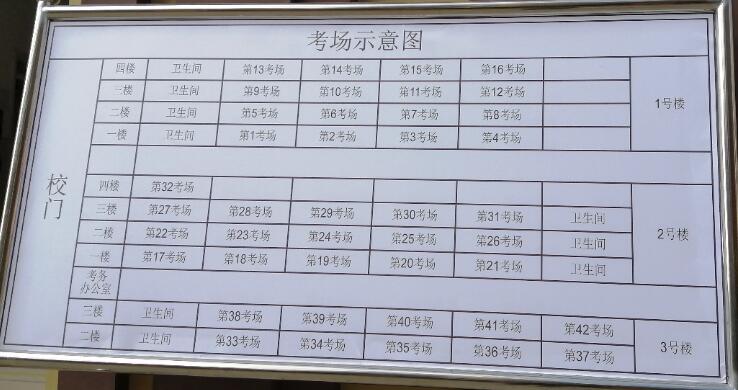 考场示意图
四楼 卫生间 第13考场 第14考场 第15考场 第16考场
三楼 卫生间 第9考场 第10考场 第11考场 第12考场
二楼 卫生间 第5考场 第6考场 第7考场 第8考场
一楼 卫生间 第1考场 第2考场 第3考场 第4考场
1号楼
校门
四楼 第32考场
三楼 第27考场 第28考场 第29考场 第30考场 第31考场 卫生间
二楼 第22考场 第23考场 第24考场 第25考场 第26考场 卫生间
一楼 第17考场 第18考场 第19考场 第20考场 第21考场 卫生间
2号楼
考务
办公室
三楼 卫生间 第38考场 第39考场 第40考场 第41考场 第42考场
二楼 卫生间 第33考场 第34考场 第35考场 第36考场 第37考场
3号楼